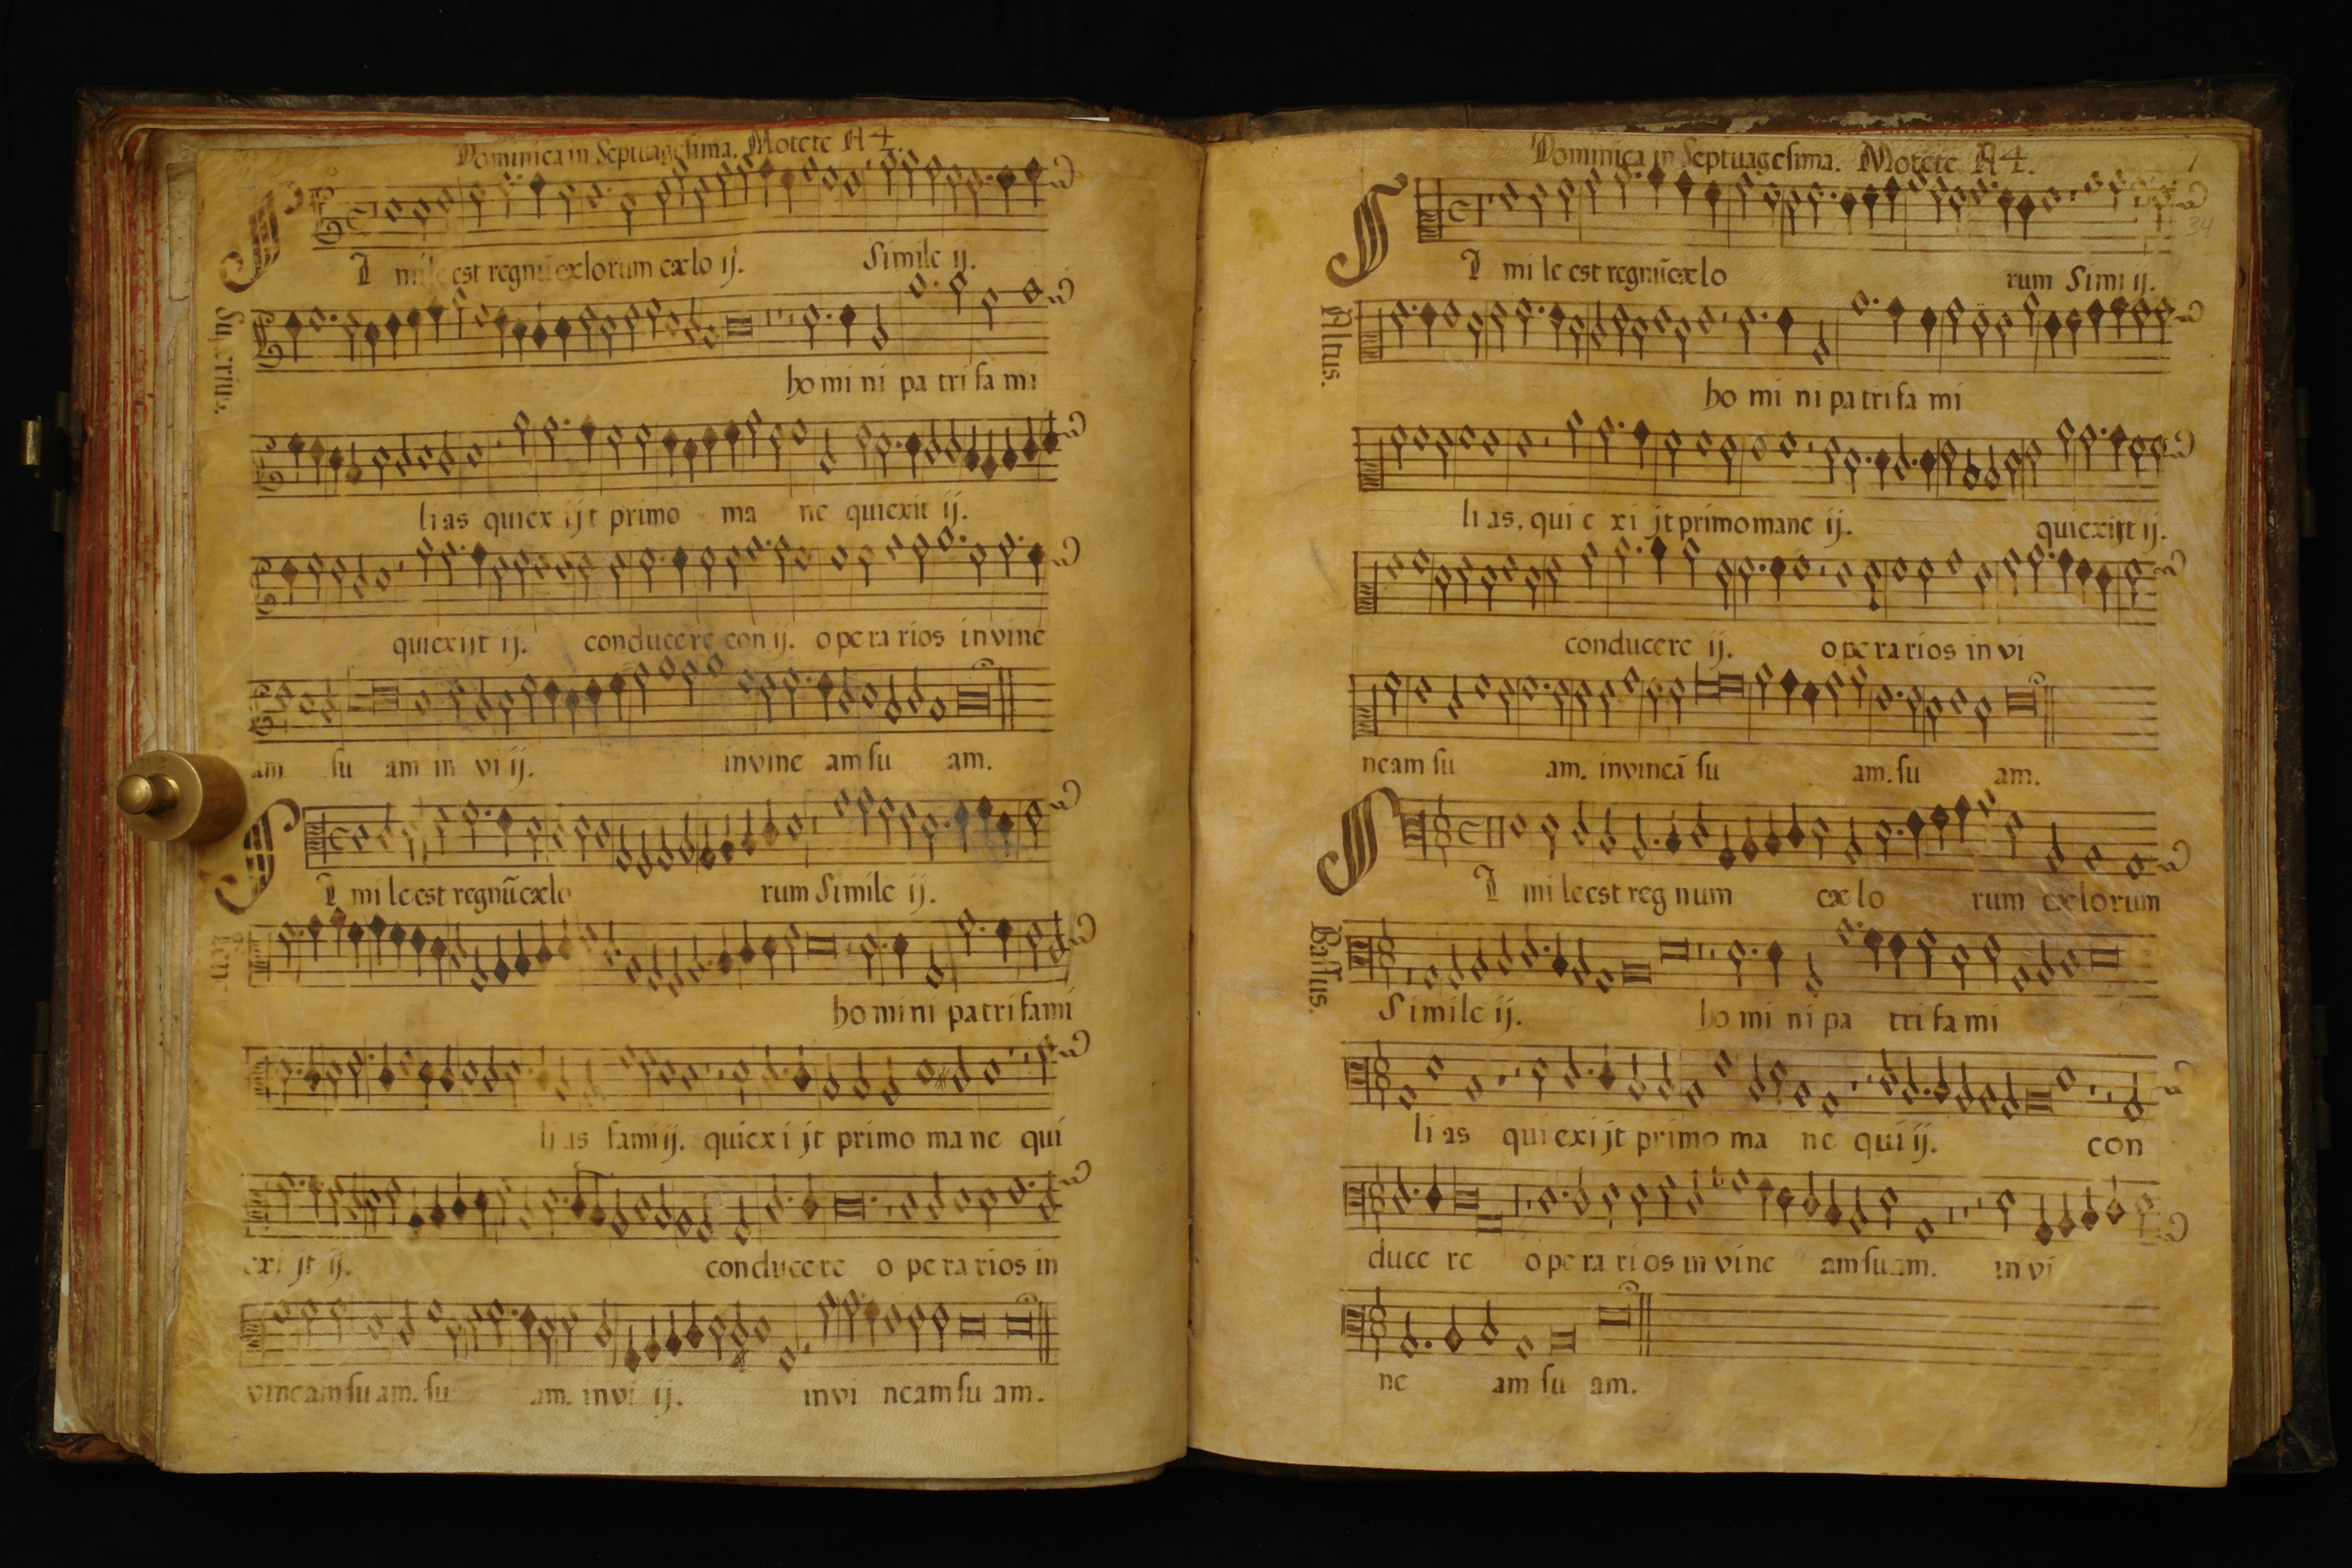 Dominica in Septuagesima. Motete A 4.
SI mile est regnũ cælorum cælo ij. Simile ij.
Superius.
ho mi ni pa tri fa mi
li as qui ex ijt primo ma ne quiexit ij.
quiexijt ij. conducere con ij. o pe ra rios in vine
am su am in vi ij. in vine am su am.
SI mi le est regnũ cælo rum Simile ij.
Ten
ho mi ni pa tri fami
li as fami ij. qui ex i jt primo ma ne qui
exi jt ij. conducere o pe ra rios in
vineam su am. su am. in vi ij. in vi neam su am.
Dominica in Septuagesima. Motete A 4.
34
SI mi le est regnũ cælo rum Simi ij.
Altus.
ho mi ni pa tri fa mi
li as, qui e xi jt primo mane ij. quiexijt ij.
conducere ij. o pe ra rios in vi
neam su am. in vineã su am. su am.
SI mi le est reg num cæ lo rum cælorum
Bassus.
Simile ij. ho mi ni pa tri fa mi
li as qui exi jt primo ma ne qui ij. con
duce re o pe ra ri os in vine am su am. in vi
ne am su am.